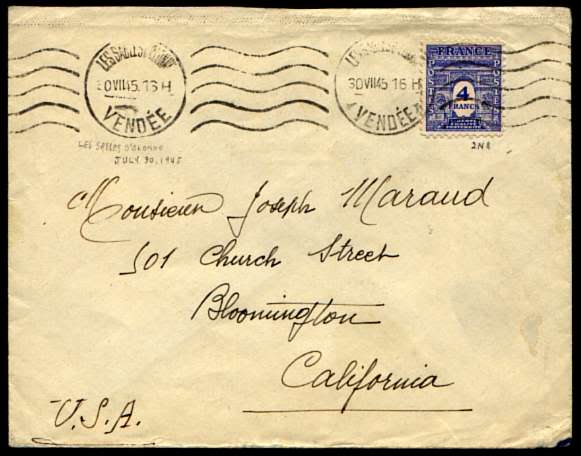 LES SABLES D'OLONNE
30 VII 45. 16 H
VENDÉE
30 VII 45. 16 H
VENDÉE
FRANCE
POSTES
POSTES
4
FRANCS
LES SABLES D'OLONNE
JULY 30, 1945
2N8
Monsieur Joseph Maraud
501 Church Street
Bloomington
California
U.S.A.